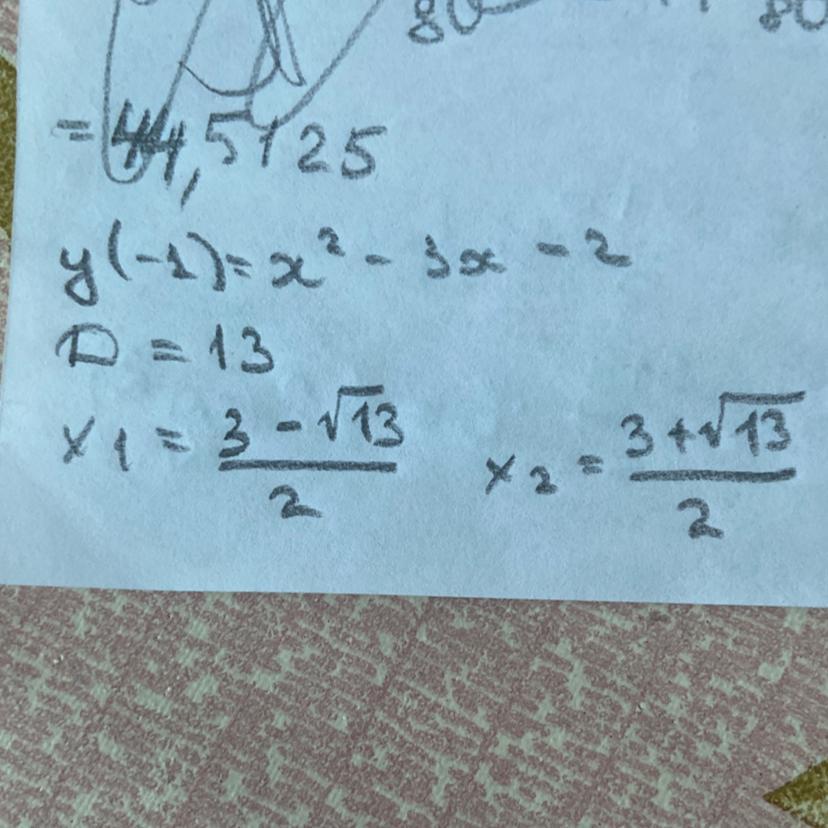 80 80
= 44,5125
y(-1)= x² - 3x - 2
D = 13
x1 = (3 - √13)/2 x2 = (3 + √13)/2